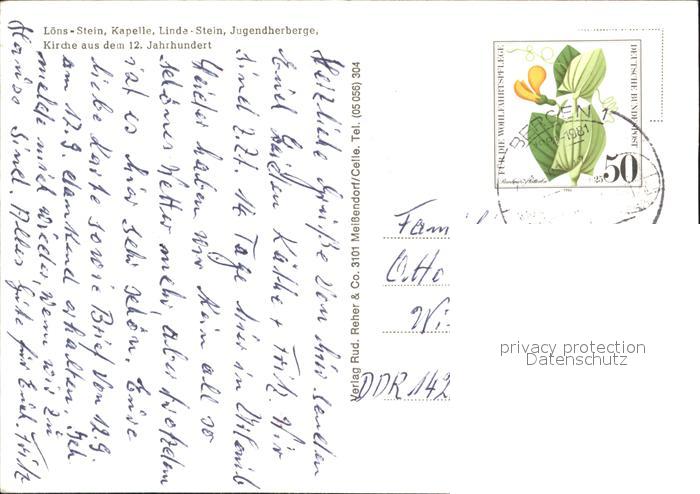 Löns-Stein, Kapelle, Linda-Stein, Jugendherberge,
Kirche aus dem 12. Jahrhundert
Herzliche Grüße von hier senden
Euch beiden Käthe + Fritz. Wir
sind z.Zt. 14 Tage hier in
Leider haben wir kein all so
schönes Wetter mehr, aber trotzdem
ist es hier sehr schön. Eure
liebe Karte sowie Brief vom 12.9.
am 17.9. dankend erhalten. Ich
melde mich wieder, wenn wir zu
Hause sind. Alles Gute für Euch. Fritz
Verlag Rud. Reher & Co. 3101 Meißendorf/Celle. Tel. (05056) 304
FÜR DIE WOHLFAHRTSPFLEGE
DEUTSCHE BUNDESPOST
50
+25
BERGEN 1
1981
Fam
Otto
Wi
DDR 142
privacy protection
Datenschutz